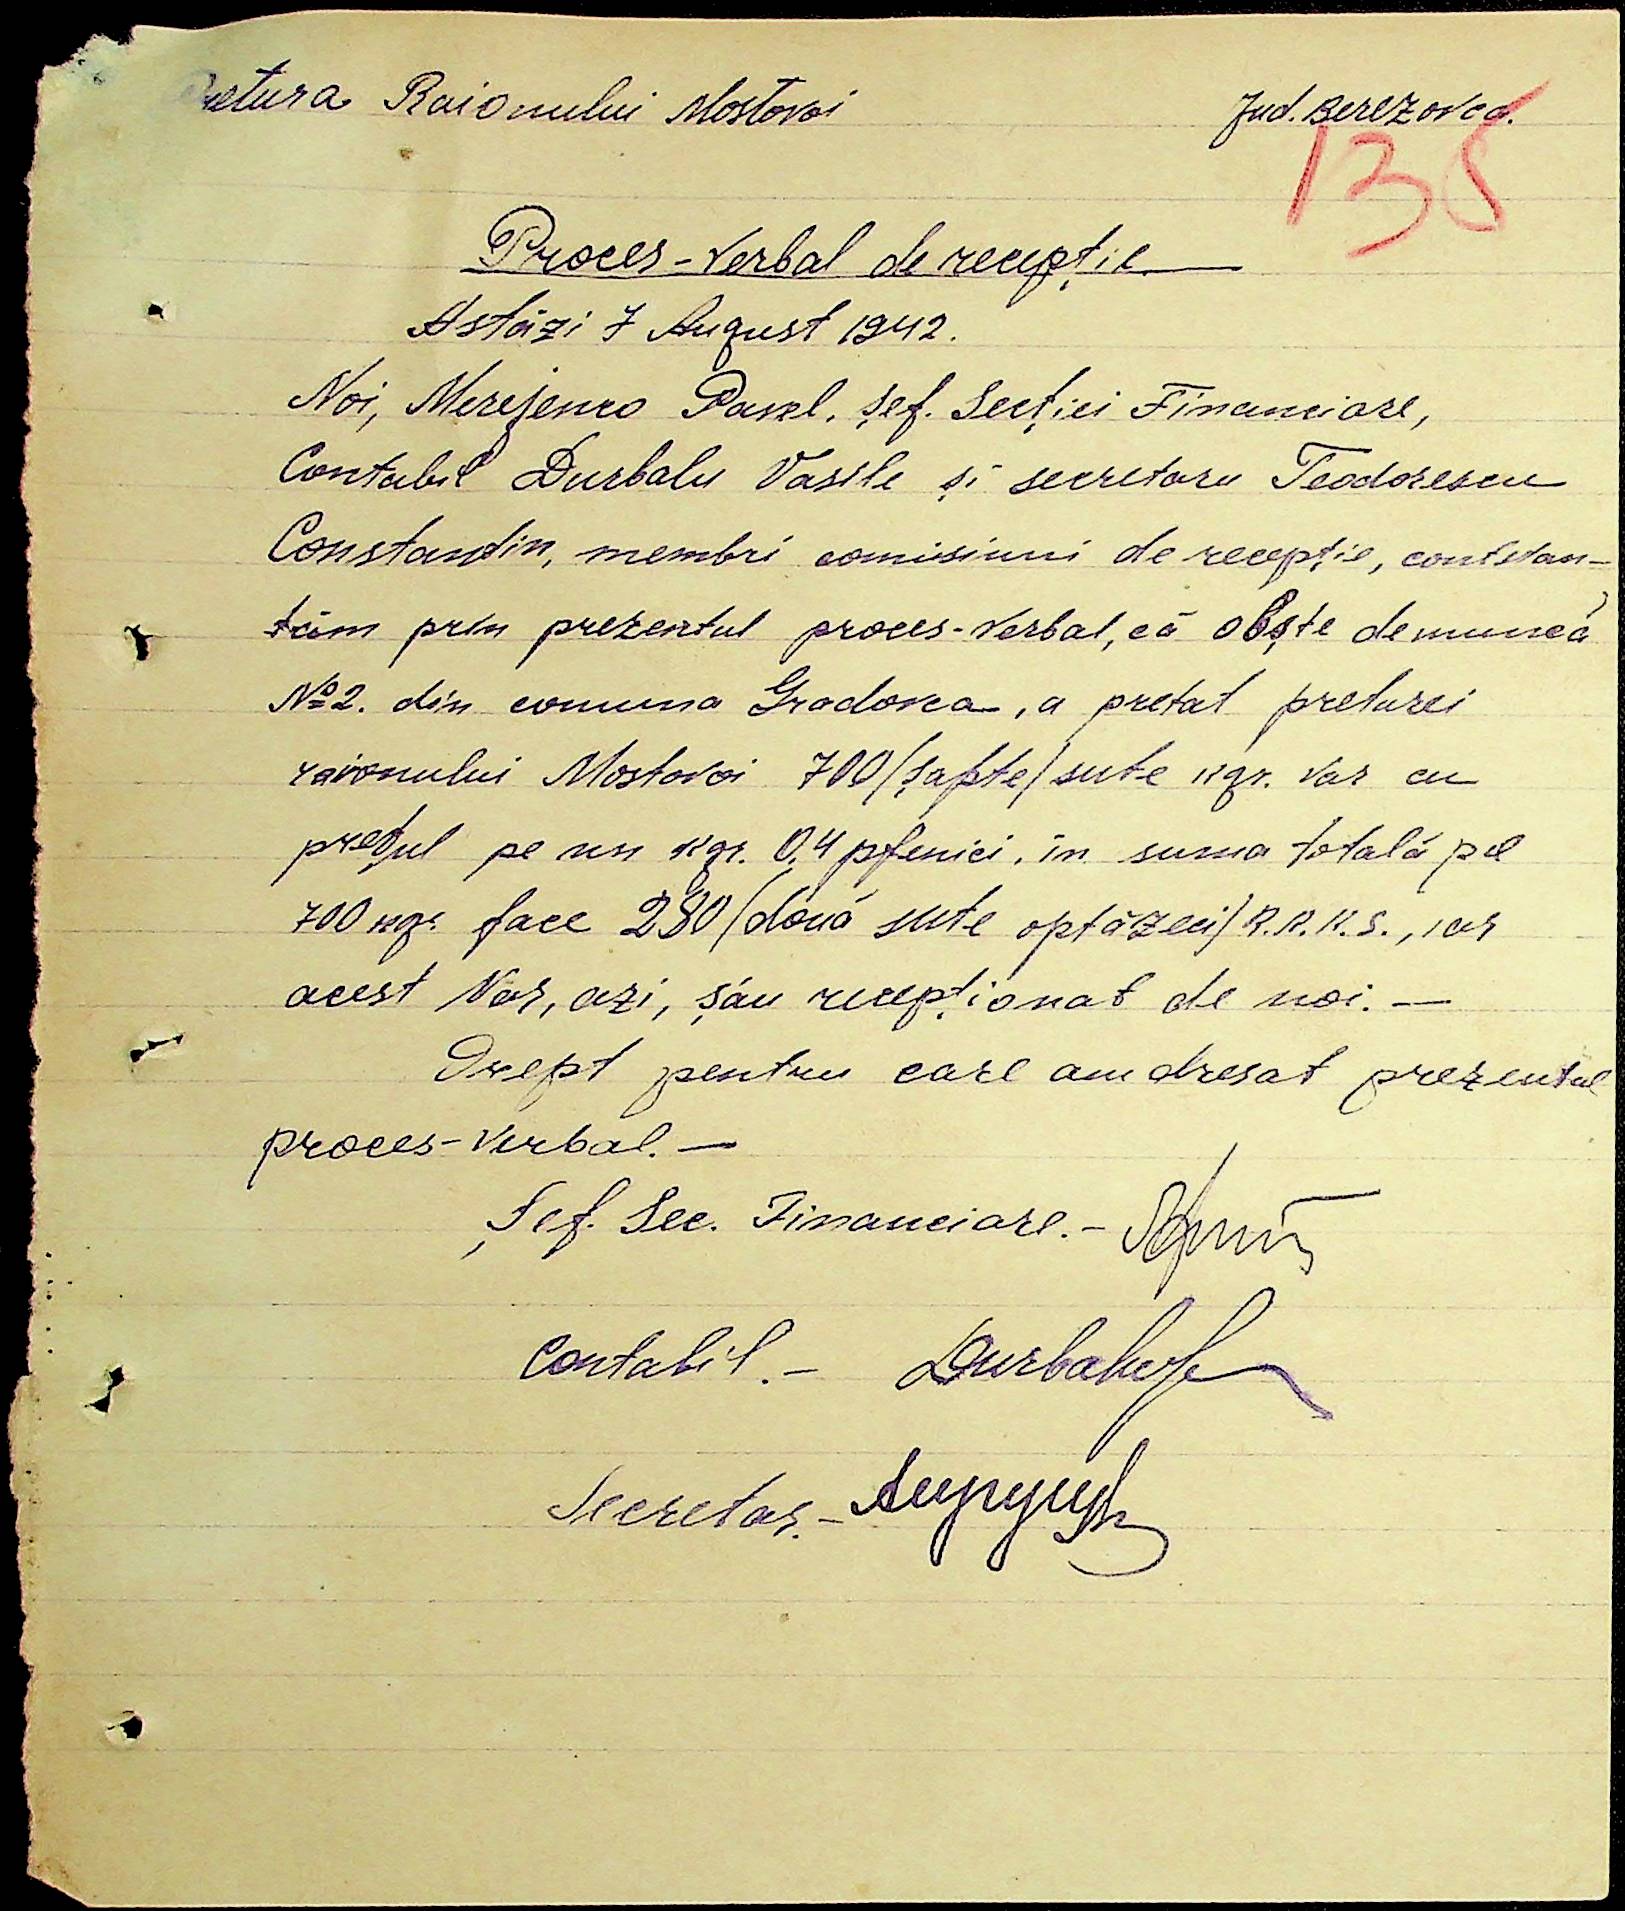 Pretura Raionului Mostovoi Jud. Berezovca.
135
Proces-Verbal de recepție
Astăzi 7 August 1942.
Noi, Merejenco Pavel, șef. Secției Financiare,
Contabil Durbalu Vasile și secretaru Teodorescu
Constantin, membri comisiuni de recepție, contstan-
tăm prin prezentul proces-verbal, că obște de muncă
№2. din comuna Gradovca, a pretat preturei
raionului Mostovoi 700/șapte/sute kgr. var cu
prețul pe un kgr. 0,4 pfenici, in suma totală pe
700 kgr. face 280/două sute optăzeci/R.K.K.S., iar
acest Var, azi, său recepționat de noi. —
Drept pentru care am dresat prezentul
proces-verbal. —
Șef. Sec. Financiare. –
Contabil. –
Secretar. –